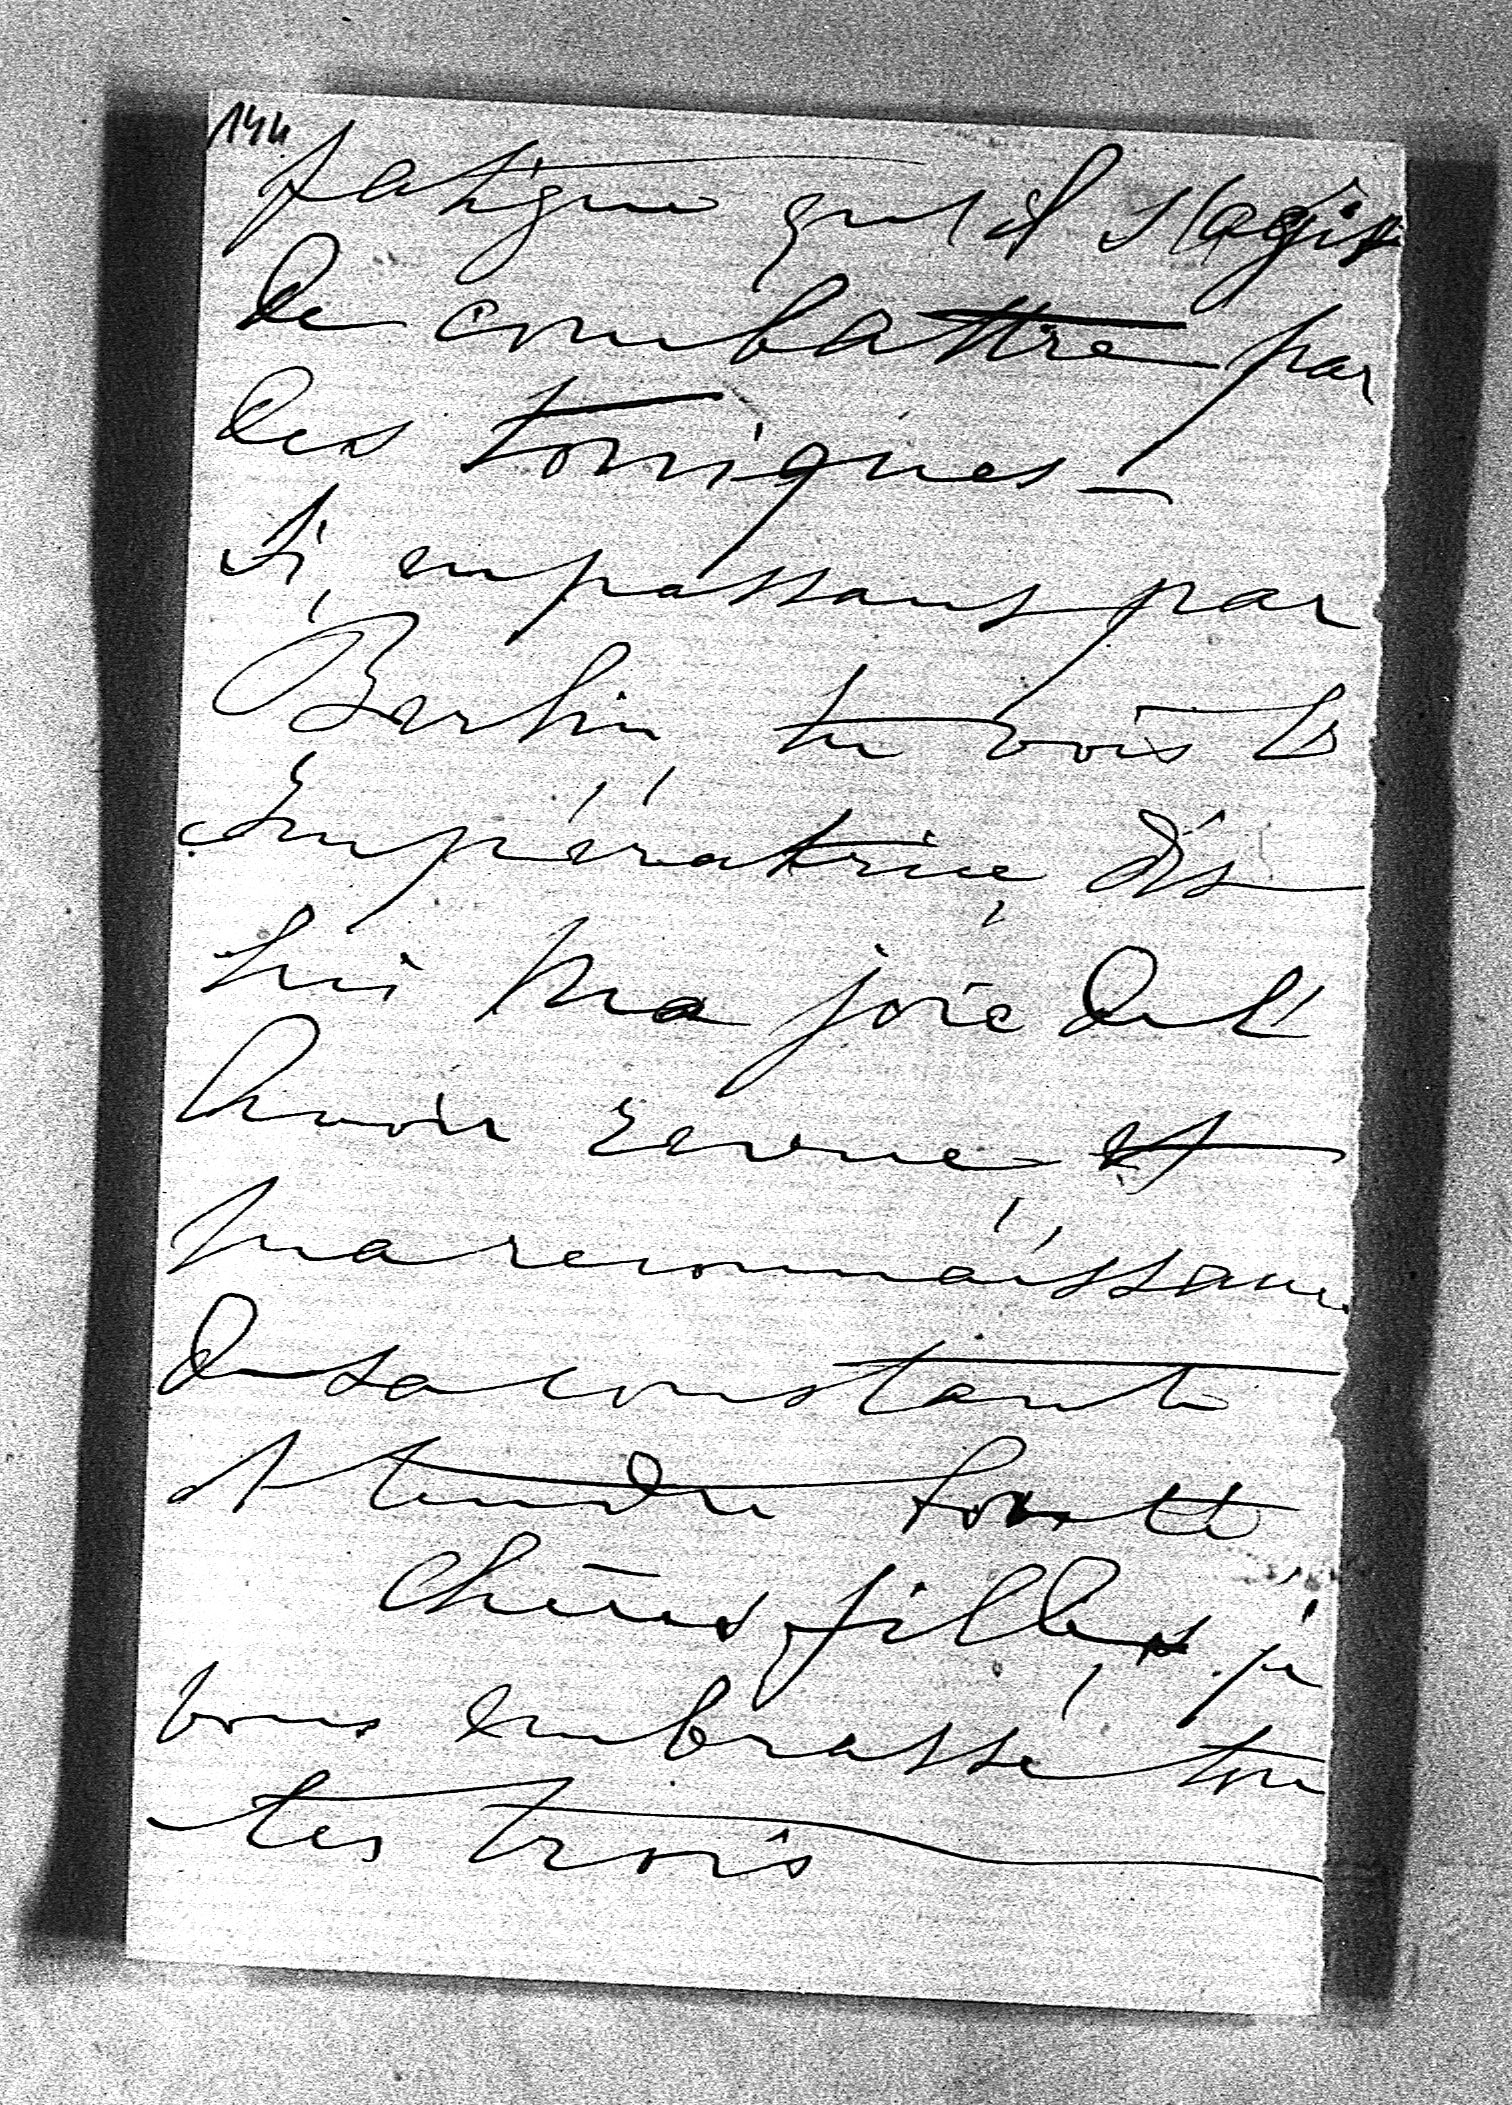 144
fatigue qu'il s'agit
de combattre par
des toniques —
Si, en passant par
Berlin, tu vois l'
Impératrice, dis
lui ma joie de l'
avoir revue et
ma reconnaissance
de sa constante
et tendre bonté
Chères filles, je
vous embrasse tou
tes trois